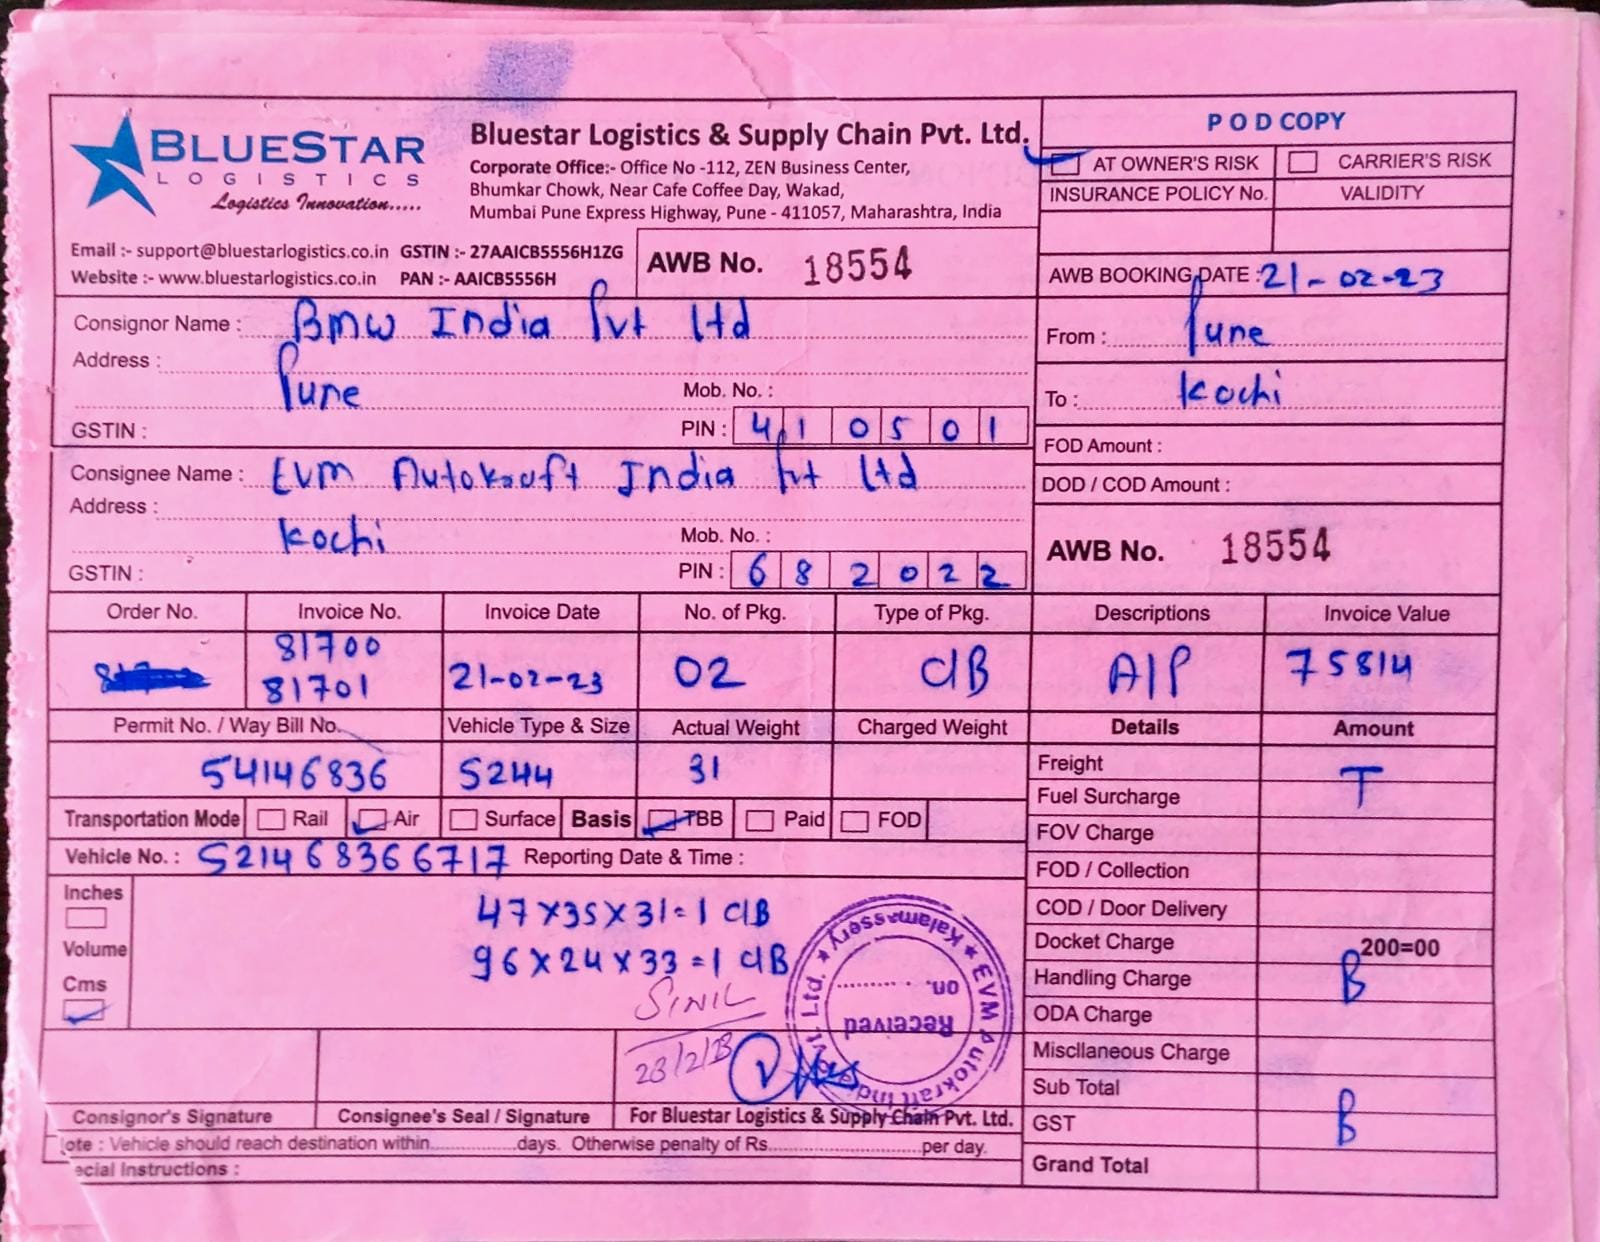 BLUESTAR
LOGISTICS
Logistics Innovation.....
Bluestar Logistics & Supply Chain Pvt. Ltd.
Corporate Office:- Office No -112, ZEN Business Center,
Bhumkar Chowk, Near Cafe Coffee Day, Wakad,
Mumbai Pune Express Highway, Pune - 411057, Maharashtra, India
Email :- support@bluestarlogistics.co.in GSTIN :- 27AAICB5556H1ZG
Website :- www.bluestarlogistics.co.in PAN :- AAICB5556H
AWB No. 18554
P O D COPY
AT OWNER'S RISK CARRIER'S RISK
INSURANCE POLICY No. VALIDITY
AWB BOOKING DATE : 21-02-23
Consignor Name : BMW India Pvt Ltd
Address :
Pune
Mob. No. :
GSTIN : PIN : 410501
From : Pune
To : Kochi
FOD Amount :
DOD / COD Amount :
Consignee Name : EVM Autokraft India Pvt Ltd
Address :
Kochi
Mob. No. :
GSTIN : PIN : 682022
AWB No. 18554
Order No. Invoice No. Invoice Date No. of Pkg. Type of Pkg. Descriptions Invoice Value
81700
81701 21-02-23 02 C/B A/P 75814
Permit No. / Way Bill No. Vehicle Type & Size Actual Weight Charged Weight Details Amount
54146836 5244 31
Freight T
Fuel Surcharge
Transportation Mode Rail Air Surface Basis TBB Paid FOD
FOV Charge
Vehicle No. : 5214 68366717 Reporting Date & Time :
FOD / Collection
Inches
Volume
Cms
47x35x31=1 C/B
96x24x33=1 C/B
SINIL
23/2/23
EVM Autokraft India Pvt. Ltd. ★ Kalamassery ★
Received
on. ..........
COD / Door Delivery
Docket Charge 200=00
Handling Charge B
ODA Charge
Miscllaneous Charge
Sub Total
GST B
Grand Total
Consignor's Signature Consignee's Seal / Signature For Bluestar Logistics & Supply Chain Pvt. Ltd.
ote : Vehicle should reach destination within...............days. Otherwise penalty of Rs...........................per day.
ecial Instructions :